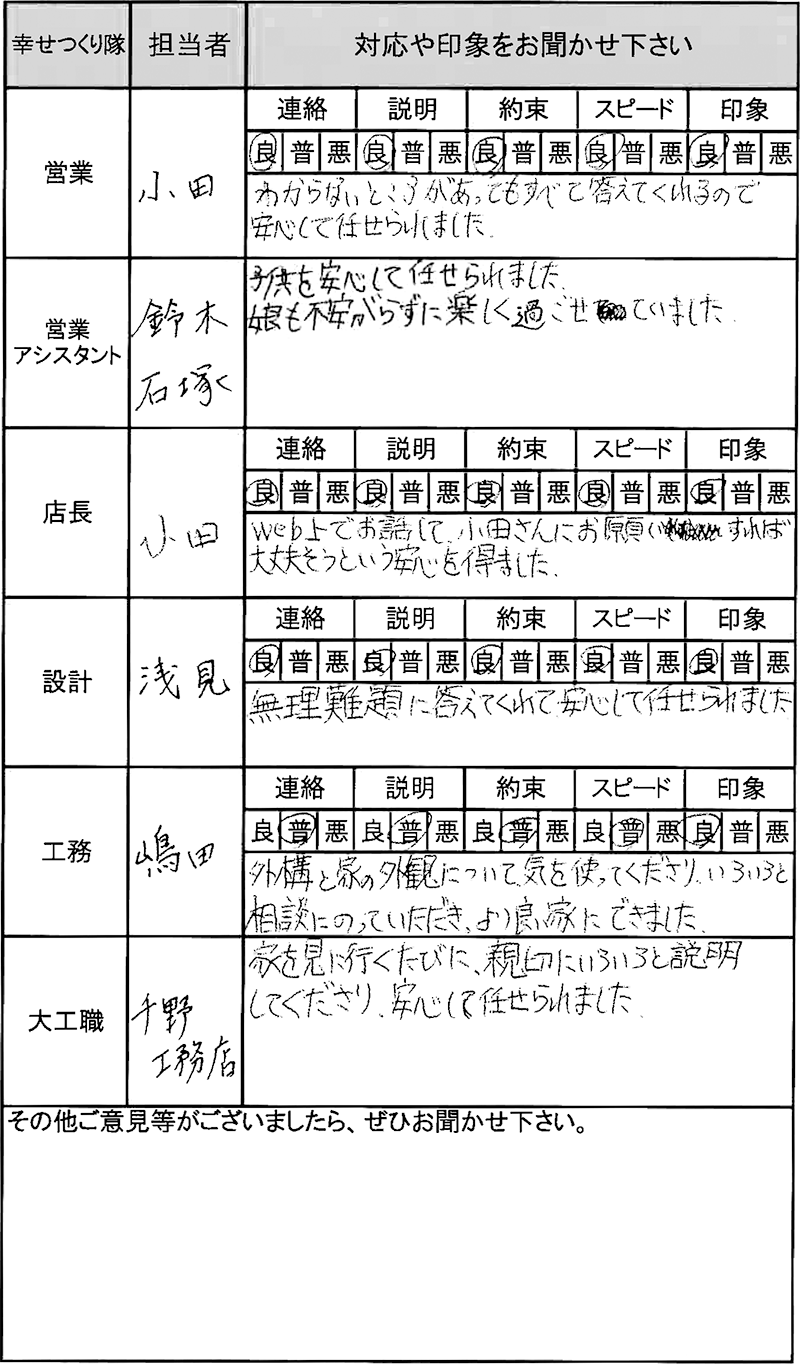 幸せつくり隊 担当者 対応や印象をお聞かせ下さい
営業 小田
連絡 説明 約束 スピード 印象
良 普 悪 良 普 悪 良 普 悪 良 普 悪 良 普 悪
わからないところがあってもすべて答えてくれるので
安心して任せられました.
営業
アシスタント
鈴木
石塚
子供を安心して任せられました.
娘も不安がらずに楽しく過ごせていました.
店長 小田
連絡 説明 約束 スピード 印象
良 普 悪 良 普 悪 良 普 悪 良 普 悪 良 普 悪
web上でお話して、小田さんにお願いすれば
大丈夫そうという安心を得ました.
設計 浅見
連絡 説明 約束 スピード 印象
良 普 悪 良 普 悪 良 普 悪 良 普 悪 良 普 悪
無理難題に答えてくれて、安心して任せられました
工務 嶋田
連絡 説明 約束 スピード 印象
良 普 悪 良 普 悪 良 普 悪 良 普 悪 良 普 悪
外構と家の外観について、気を使ってくださり、いろいろと
相談にのっていただき、より良い家にできました.
大工職
千野
工務店
家を見に行くたびに、親切にいろいろと説明
してくださり、安心して任せられました.
その他ご意見等がございましたら、ぜひお聞かせ下さい。